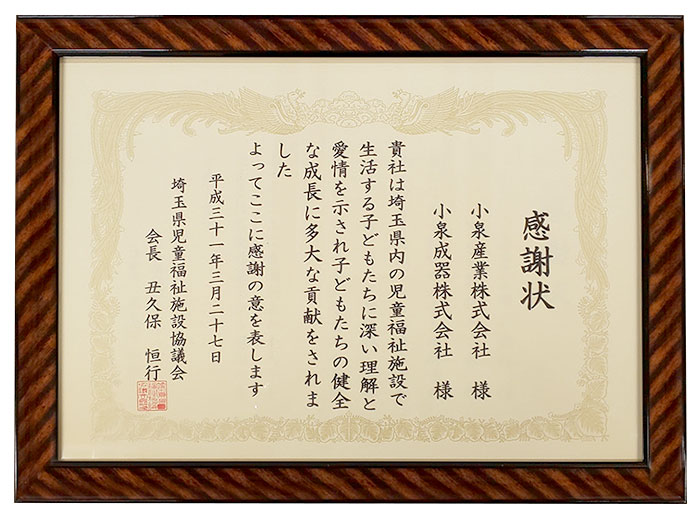 感謝状
小泉産業株式会社 様
小泉成器株式会社 様
貴社は埼玉県内の児童福祉施設で
生活する子どもたちに深い理解と
愛情を示され子どもたちの健全
な成長に多大な貢献をされま
した
よってここに感謝の意を表します
平成三十一年三月二十七日
埼玉県児童福祉施設協議会
会長 丑久保 恒行